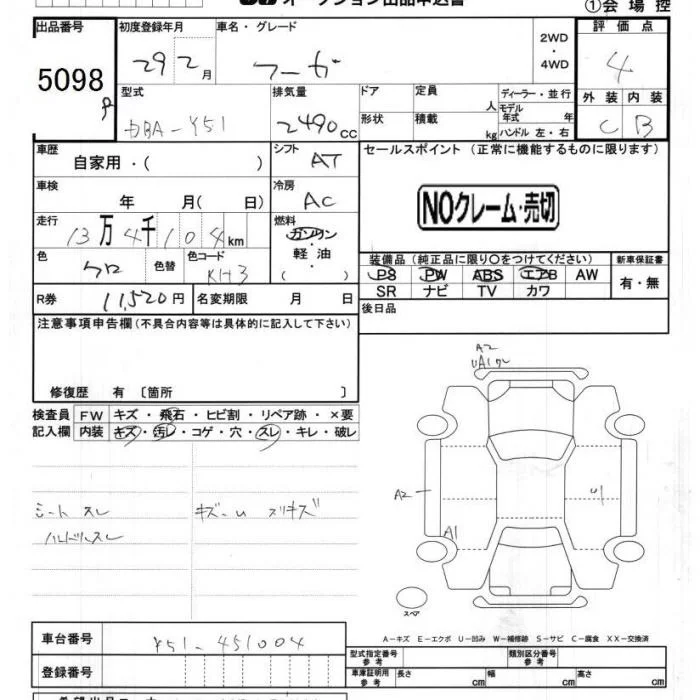 オークション出品申込書
①会場控
出品番号 初度登録年月 車名・グレード 評価点
5098 29 2月 フーガ 2WD・4WD 4
型式 排気量 ドア 定員 人 ディーラー・並行 外装 内装
DBA-Y51 2490cc 形状 積載 kg モデル年式 年 ハンドル 左・右 C B
車歴 自家用・( ) シフト AT セールスポイント (正常に機能するものに限ります)
車検 年 月(日) 冷房 AC
NOクレーム・売切
走行 13万4千104km 燃料 ガソリン・軽油・( )
色 クロ 色替 色コード KH3
装備品(純正品に限り〇をつけてください) 新車保証書
PS PW ABS エアB AW 有・無
SR ナビ TV カワ
R券 11,520円 名変期限 月 日 後日品
注意事項申告欄(不具合内容等は具体的に記入して下さい)
修復歴 有 〔箇所 〕
検査員 FW キズ・飛石・ヒビ割・リペア跡・×要
記入欄 内装 キズ・汚レ・コゲ・穴・スレ・キレ・破レ
シートスレ キズ-U スリキズ
ハンドルスレ
A2
A2
A1
U1
スペア
A-キズ E-エクボ U-凹み W-補修跡 S-サビ C-腐食 XX-交換済
車台番号 Y51-451004
型式指定番号 参考 類別区分番号 参考
登録番号 車庫証明用 参考 長さ cm 幅 cm 高さ cm